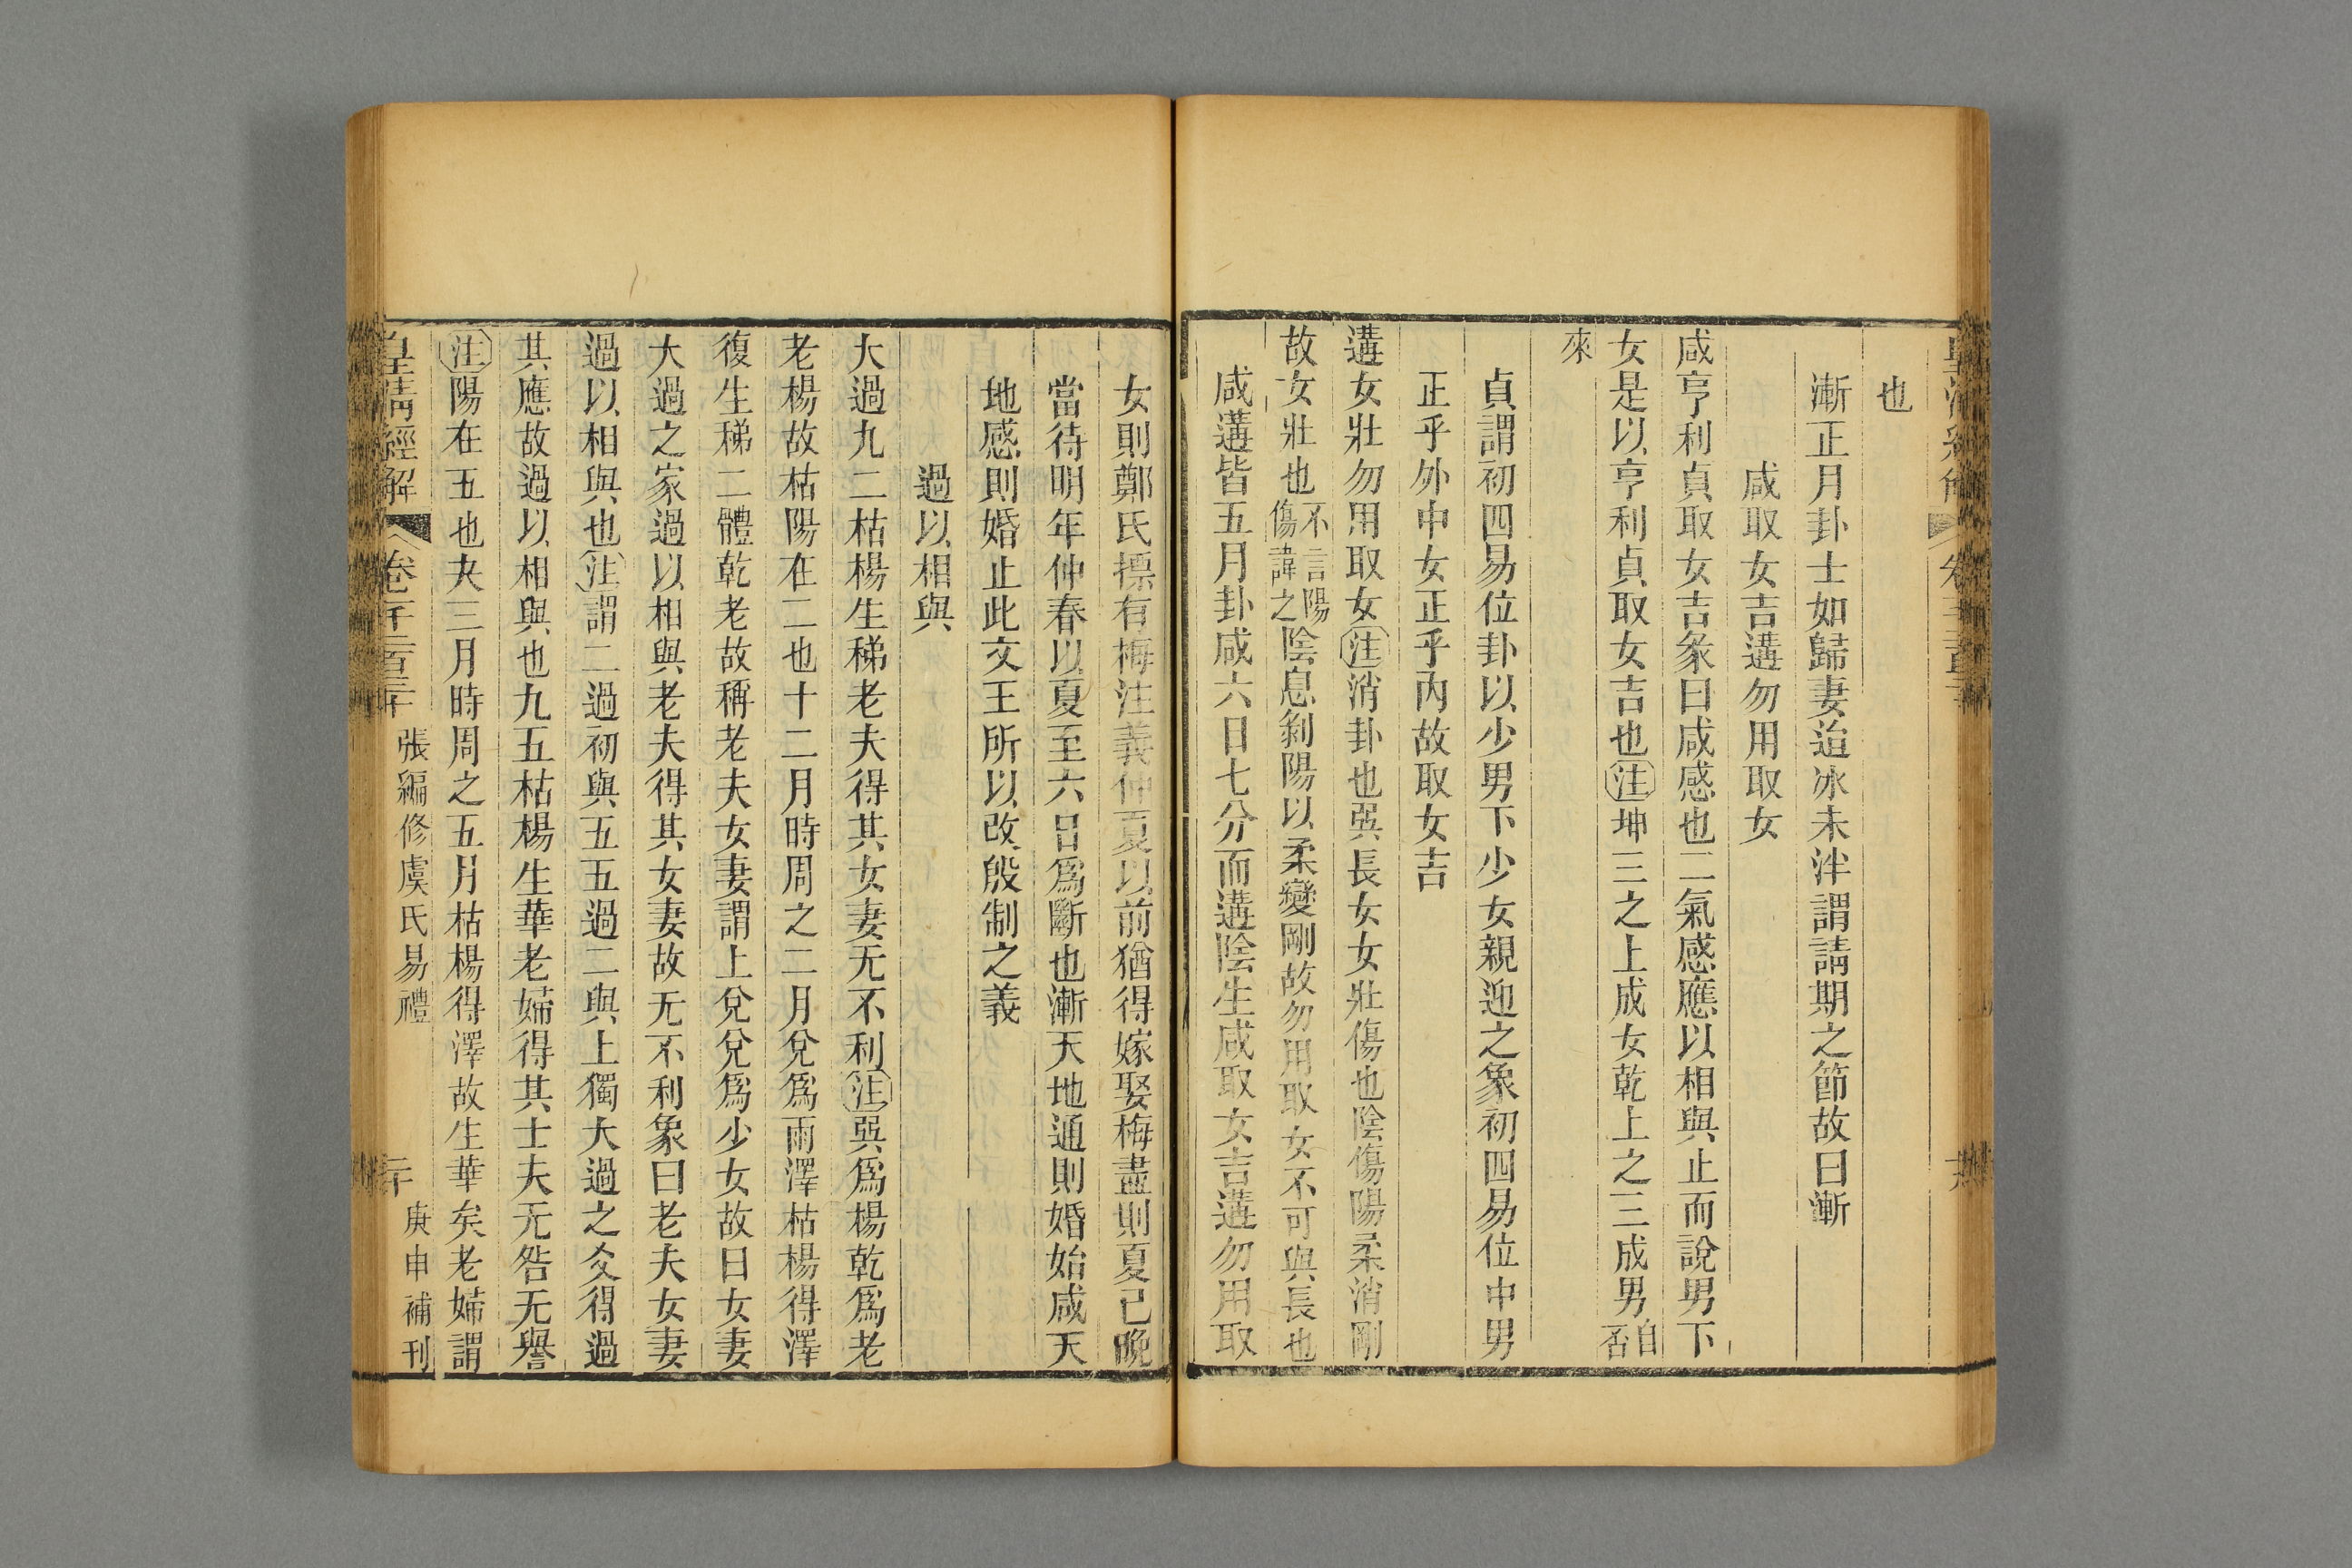 也
漸正月卦士如歸妻迨冰未泮謂請期之節故曰漸
咸取女吉遘勿用取女
咸亨利貞取女吉彖曰咸感也二氣感應以相與止而說男下
女是以亨利貞取女吉也注坤三之上成女乾上之三成男自否
來
貞謂初四易位卦以少男下少女親迎之象初四易位中男
正乎外中女正乎內故取女吉
遘女壯勿用取女注消卦也巽長女女壯傷也陰傷陽柔消剛
故女壯也不言陽傷諱之陰息剝陽以柔變剛故勿用取女不可與長也
咸遘皆五月卦咸六日七分而遘陰生咸取女吉遘勿用取
女則鄭氏摽有梅注義仲夏以前猶得嫁娶梅盡則夏已晚
當待明年仲春以夏至六日爲斷也漸天地通則婚始咸天
地感則婚止此文王所以改殷制之義
過以相與
大過九二枯楊生稊老夫得其女妻无不利注巽爲楊乾爲老
老楊故枯陽在二也十二月時周之二月兌爲雨澤枯楊得澤
復生稊二體乾老故稱老夫女妻謂上兌兌爲少女故曰女妻
大過之家過以相與老夫得其女妻故无不利象曰老夫女妻
過以相與也注謂二過初與五五過二與上獨大過之爻得過
其應故過以相與也九五枯楊生華老婦得其士夫无咎无譽
注陽在五也夬三月時周之五月枯楊得澤故生華矣老婦謂
皇清經解 卷一千二百二十 張編修虞氏易禮 二十 庚申補刊